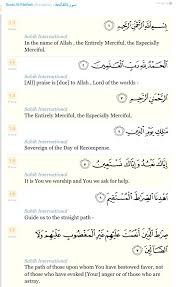 سورة الفاتحة
Sahih International
بِسْمِ اللَّهِ الرَّحْمَٰنِ الرَّحِيمِ
Sahih International
In the name of Allah , the Entirely Merciful, the Especially
Merciful.
الْحَمْدُ لِلَّهِ رَبِّ الْعَالَمِينَ
Sahih International
[All] praise is [due] to Allah , Lord of the worlds -
الرَّحْمَٰنِ الرَّحِيمِ
Sahih International
The Entirely Merciful, the Especially Merciful,
مَالِكِ يَوْمِ الدِّينِ
Sahih International
Sovereign of the Day of Recompense.
إِيَّاكَ نَعْبُدُ وَإِيَّاكَ نَسْتَعِينُ
Sahih International
It is You we worship and You we ask for help.
اهْدِنَا الصِّرَاطَ الْمُسْتَقِيمَ
Sahih International
Guide us to the straight path -
صِرَاطَ الَّذِينَ أَنْعَمْتَ عَلَيْهِمْ غَيْرِ الْمَغْضُوبِ عَلَيْهِمْ وَلَا
الضَّالِّينَ
Sahih International
The path of those upon whom You have bestowed favor, not
of those who have evoked [Your] anger or of those who are
astray.